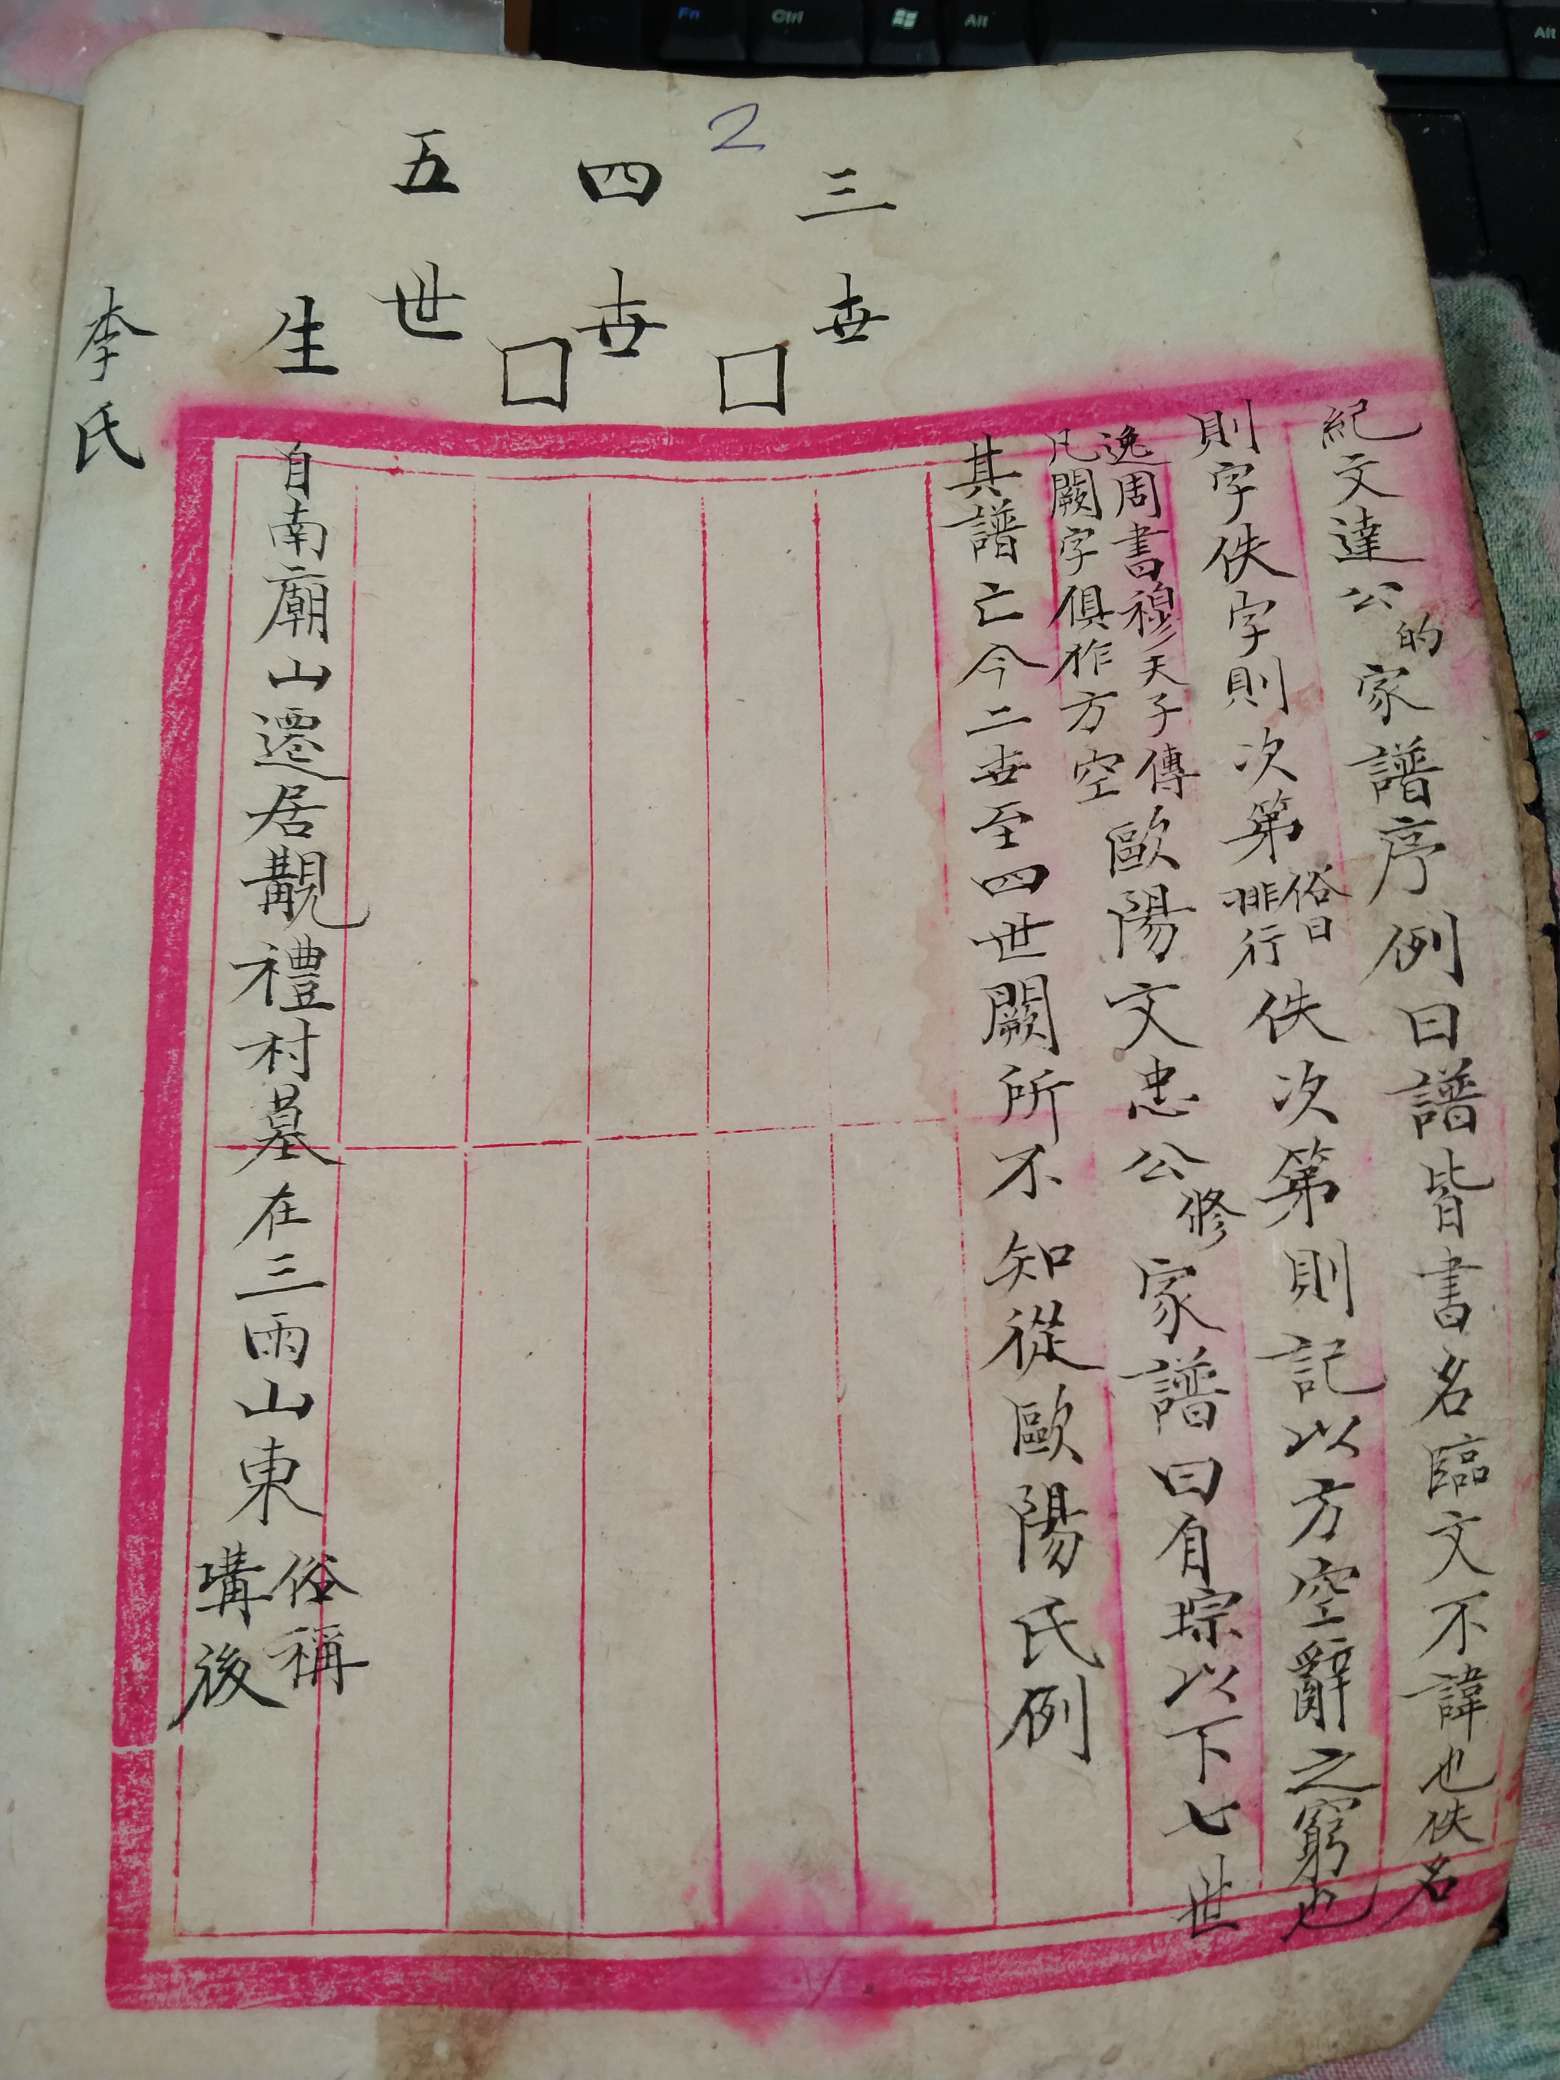 2
紀文達公的家譜序例曰譜皆書名臨文不諱也佚名
則字佚字則次第俗曰排行佚次第則記以方空辭之窮也
逸周書穆天子傳
凡闕字俱作方空
歐陽文忠公修家譜曰自琮以下七世
其譜亡今二世至四世闕所不知從歐陽氏例
三世
□
四世
□
五世
生
自南廟山遷居觀禮村墓在三雨山東俗稱
溝後
李氏
Fn
Ctrl
Alt
Alt